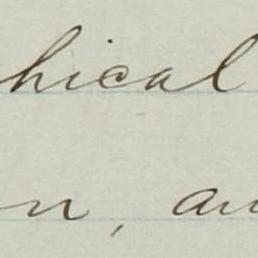 hical
n, au